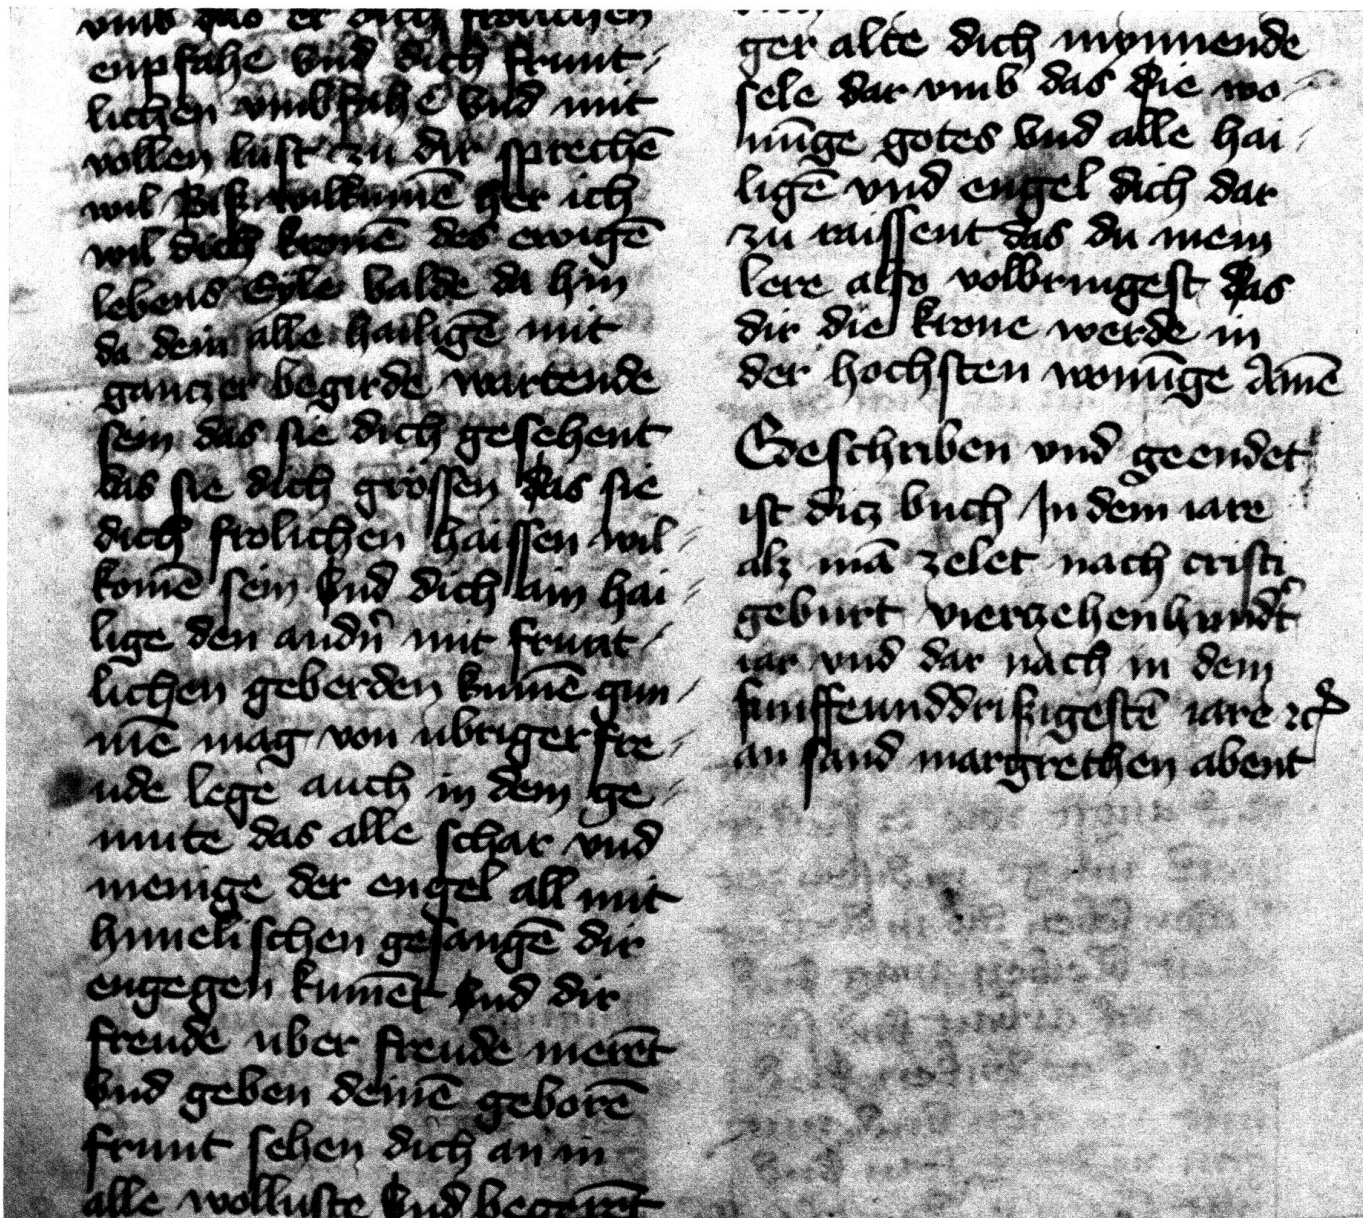 vmb das er dich frolichen
enpfahe vnd dich frunt-
lichen vmbfahe vnd mit
vollen lust zu dir sprechē
wil Bis wilkumē her ich
wil dich kronē des ewigē
lebens Eyle balde da hin
da dein alle hailigē mit
gantzer begirde wartende
sein das sie dich gesehent
das sie dich grössen das sie
dich frolichen haissen wil-
komē sein vnd dich ain hai-
lige den andn̄ mit frunt-
lichen geberden kumē gun-
nē mag von ubriger fre-
ude lege auch in dem ge-
mute das alle schar vnd
menige der engel all mit
himelischen gesangē dir
engegen kumēt vnd dir
freude uber freude merēt
vnd geben deinē geborē
frunt sehen dich an in
alle wolluste vnd begerēt
ger alte dich mynnende
sele dar vmb das die wo-
nūge gotes vnd alle hai-
ligē vnd engel dich dar
zu raissent das du mein
lere also volbringest das
dir die krone werde in
der hochsten wonūge Amē
Geschriben vnd geendet
ist dicz buch In dem iare
alz mā zelet nach cristi
geburt vierzehenhundt̄
iar vnd dar nach in dem
funffeunddrißigestē iare ꝛc
an sand margrethen abent